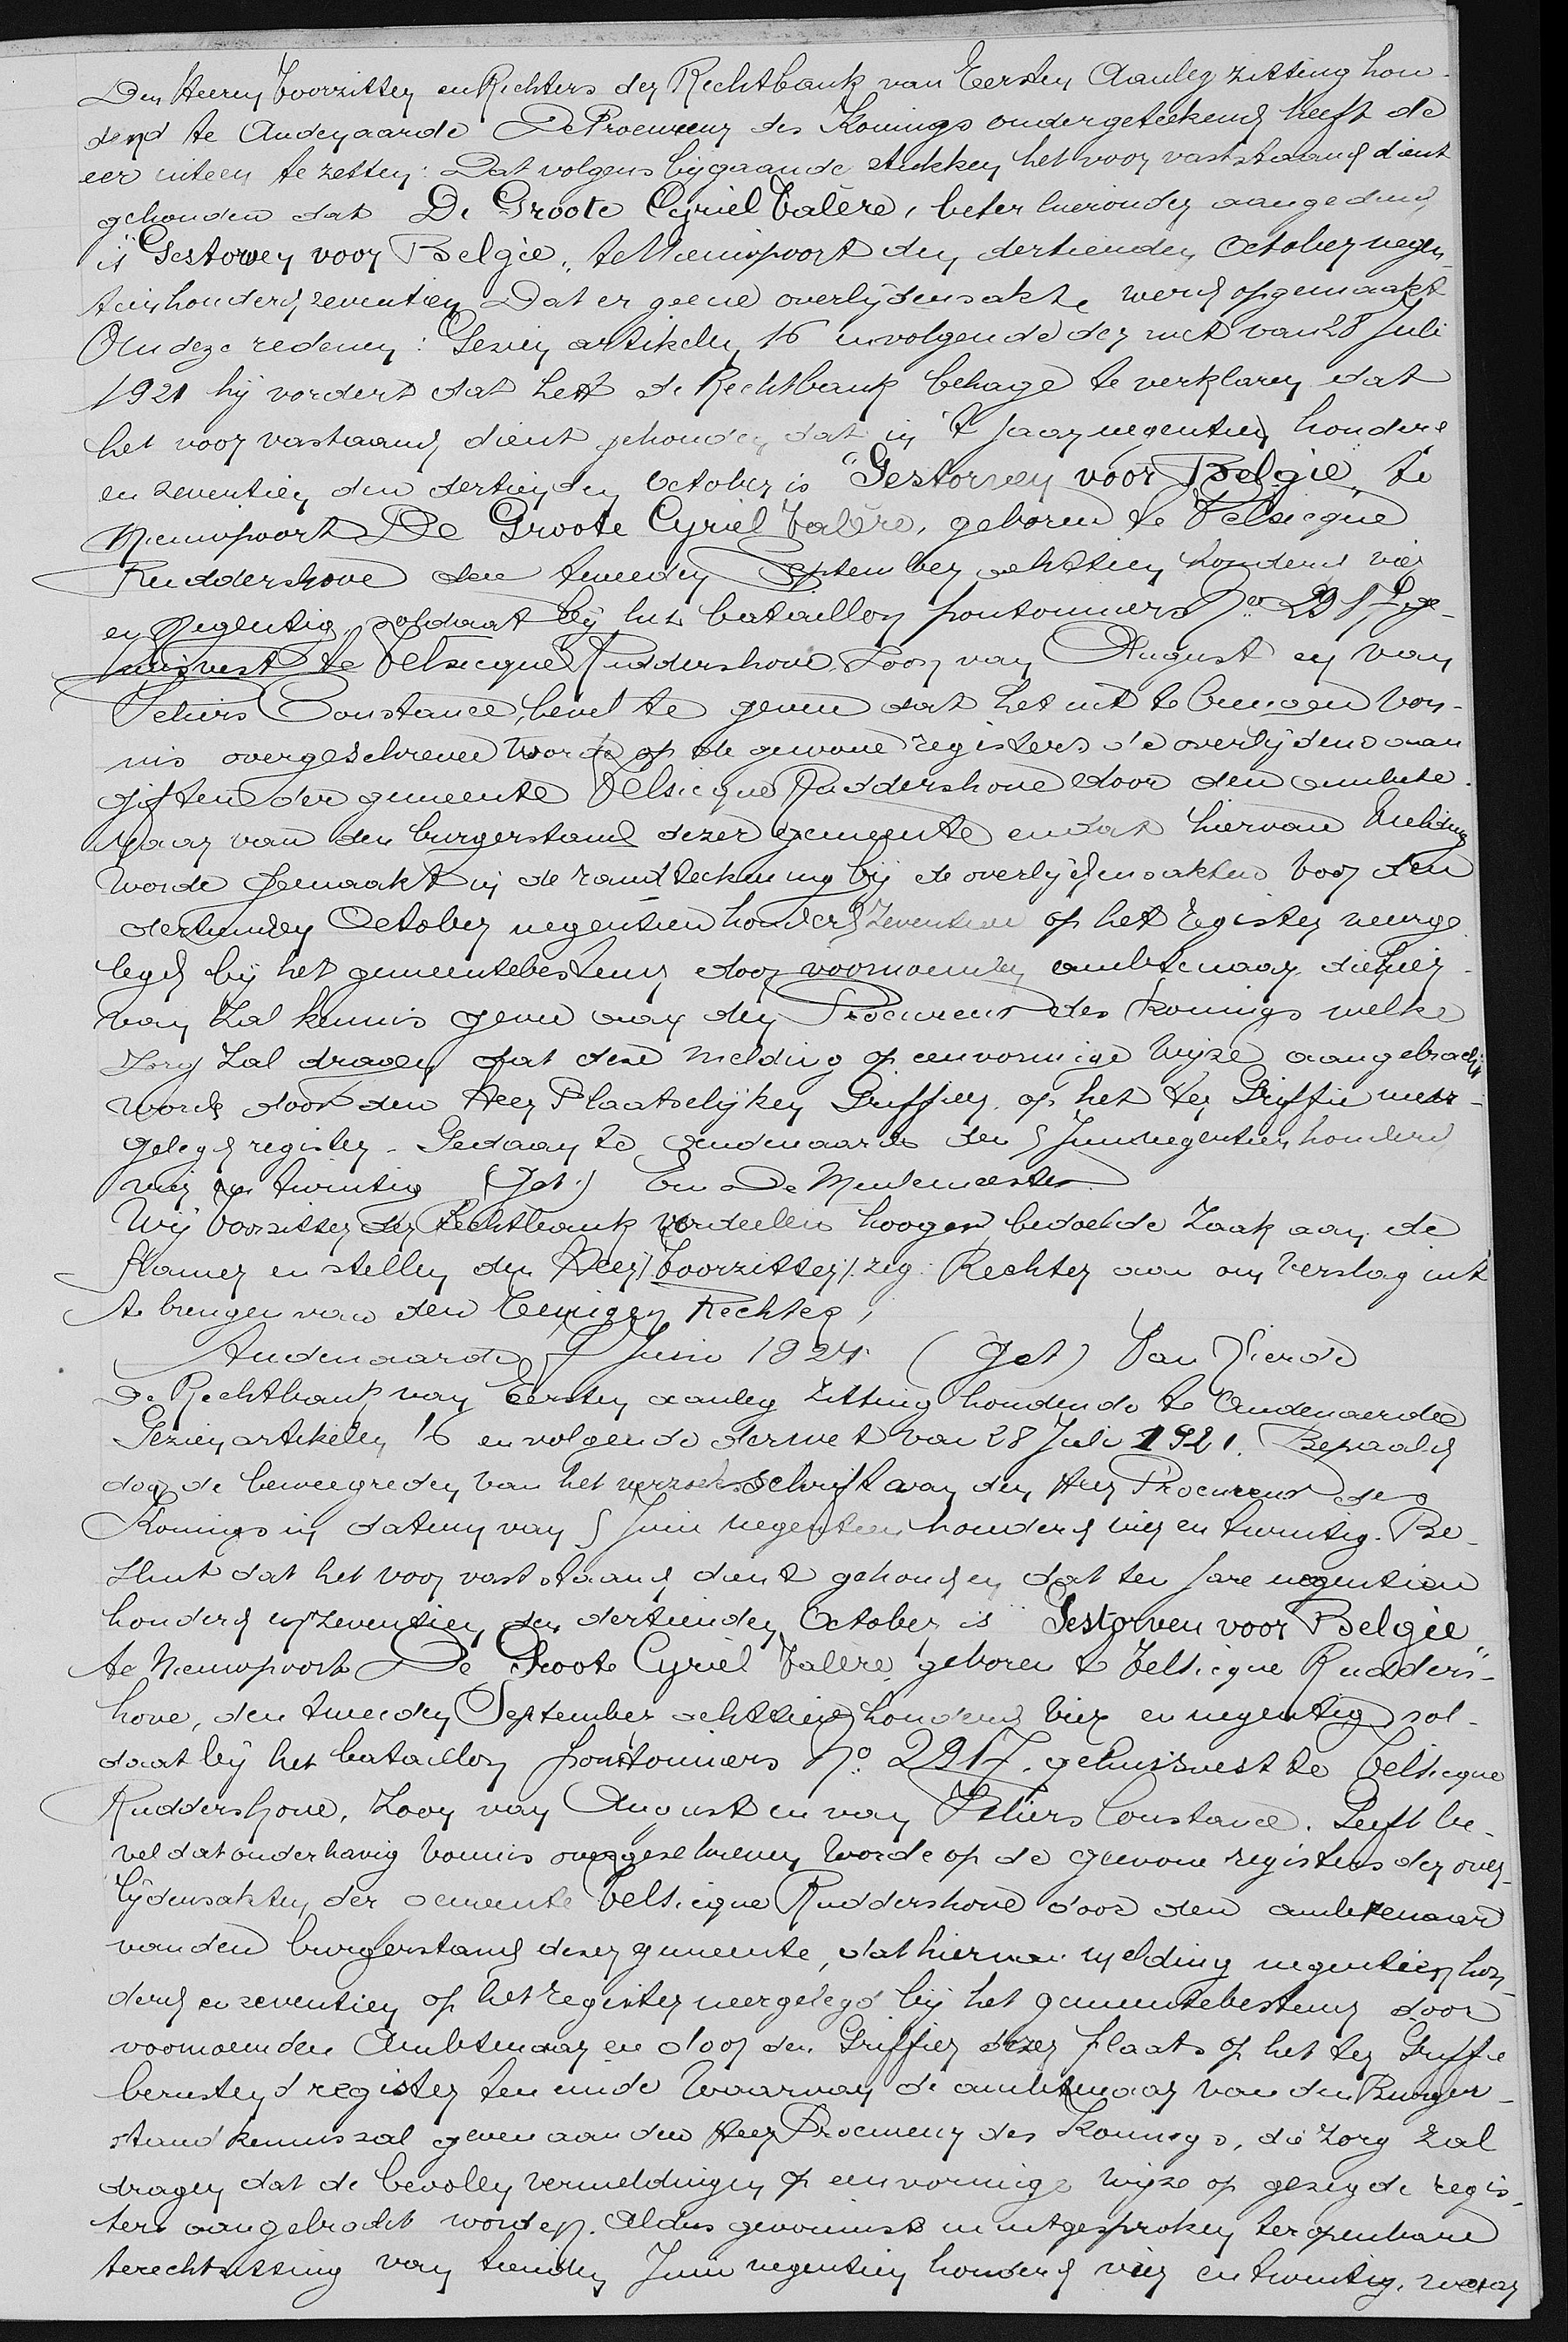 Den Heeren Voorzitter en Rechters der Rechtbank van Eersten Aanleg zitting hou-
dend te Audenaarde De Procureur des Konings ondergeteekend heeft de
eer uiteen te zetten: Dat volgens bijgaande stukken het voor vaststaand dient
gehouden dat De Groote Cyriel Valère, beter hieronder aangeduid
is "Gestorven voor België" te Nieuwpoort den dertienden October negen-
tienhonderd zeventien Dat er geene overlijdensakte werd opgemaakt
Om deze redenen: Gezien artikelen 16 en volgende der wet van 28 Juli
1921 hij vordert dat het de Rechtbank behage te verklaren dat
het voor vastaand dient gehouden dat in 't jaar negentien honderd
en zeventien den dertienden October is "Gestorven voor België" te
Nieuwpoort De Groote Cyriel Valère, geboren te Velsicque
Ruddershove den tweeden September achttien honderd vier
en negentig, soldaat bij het bataillon pontonniers No 2917, ge-
huisvest te Velsicque Ruddershove, Zoon van August en van
Constance, bevel te geven dat het uit te brengen von-
nis overgeschreven worde op de gewone registers de overlijdens aan
giften der gemeente Velsicque Ruddershove door den ambte-
naar van den burgerstand dezer gemeente en dat hiervan melding
worde gemaakt in de randteekening bij de overlijdensakten voor den
dertienden October negentien honderd zeventien op het register neerge
legd bij het gemeentebestuur door voornoemden ambtenaar die hier-
van zal kennis geven aan den Procureur des Konings welke
zorg zal dragen dat deze melding op eenvormige wijze aangebracht
worde door den Heer Plaatselijken Griffier op het ter Griffie neer-
gelegd register. Gedaan te Audenaarde den 5 Juni negentien honderd
vier en twintig (Get.) Em De Meulemeester
Wij Voorzitter der Rechtbank verdeelen hooger bedoelde zaak aan de
Kamer en stellen den Heer / Voorzitter /. zeg: Rechter aan om verslag uit
te brengen van den Eenigen Rechter,
Audenaarde 7 Juni 1924 (Get) Van Vierde
De Rechtbank van Eersten aanleg zitting houdende te Audenaerde
Gezien artikelen 16 en volgende der wet van 28 Juli 1921. Bepaald
door de beweegreden van het verzoekschrift van den Heer Procureur des
Konings in datum van 5 Juni negentien honderd vier en twintig. Be-
sluit dat het voor vast staand dient gehouden dat ten jare negentien
honderd en zeventien den dertienden October is "Gestorven voor België"
te Nieuwpoort De Groote Cyriel Valère geboren te Velsicque Rudders-
hove, den tweeden September achttien honderd vier en negentig sol-
daat bij het bataillon pontonniers No. 2917. gehuisvest te Velsicque
Ruddershove, Zoon van August en van Constance. Geeft be-
vel dat onderhavig vonnis overgeschreven worde op de gewone registers der over-
lijdensakten der gemeente Velsicque Ruddershove door den ambtenaar
van den burgerstand dezer gemeente, dat hiervan melding negentien hon-
derd en zeventien op het register neergelegd bij het gemeentebestuur door
voornoemden Ambtenaar en door den Griffier dezer plaats op het ter Griffie
berustend register ten einde waarvan de ambtenaar van den Burger-
stand kennis zal geven aan den Heer Procureur des Konings, die zorg zal
dragen dat de bevolen vermeldingen op eenvormige wijze op gezegde regis-
ters aangebracht worden. Aldus gevonnist en uitgesproken ter openbare
terechtzitting van tienden Juni negentien honderd vier en twintig, waar